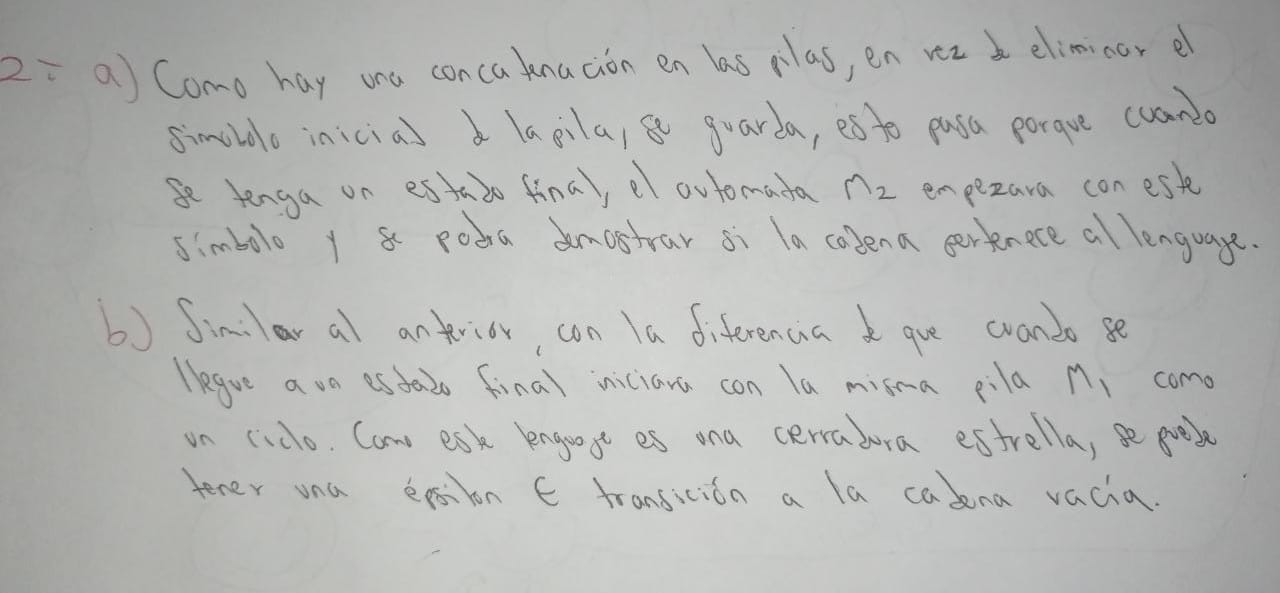 2: a) Como hay una concatenación en las pilas, en vez de eliminar el
simbolo inicial de la pila, se guarda, esto pasa porque cuando
se tenga un estado final, el automata M2 empezara con este
símbolo y se podra demostrar si la cadena pertenece al lenguaje.
b) Similar al anterior, con la diferencia de que cuando se
llegue a un estado final iniciara con la misma pila M1 como
un ciclo. Como este lenguaje es una cerradura estrella, se puede
tener una épsilon ∈ transición a la cadena vacía.